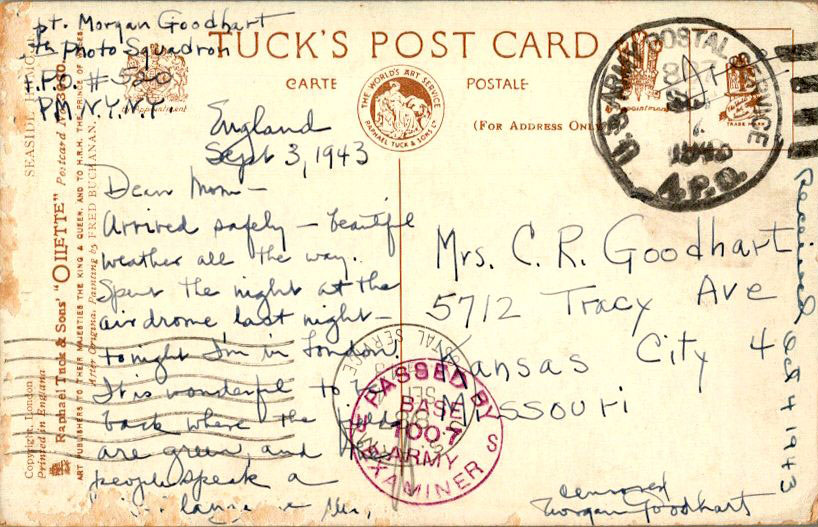 pt. Morgan Goodhart
th Photo Squadron
A.P.O. # 520
PM N.Y. N.Y.
TUCK'S POST CARD
CARTE POSTALE
(FOR ADDRESS ONLY
THE WORLD'S ART SERVICE
RAPHAEL TUCK & SONS LD
U.S. ARMY POSTAL SERVICE
1943
A.P.O.
TRADE MARK
England
Sept 3, 1943
Dear Mom –
Arrived safely – beautiful
weather all the way.
Spent the night at the
airdrome last night –
tonight I'm in London.
It is wonderful to be
back where the fields
are green, and the
people speak a
Mrs. C. R. Goodhart
5712 Tracy Ave
Kansas City 4
Missouri
Received Oct 4 1943
PASSED BY
BASE
1007
ARMY
EXAMINER
censored
Morgan Goodhart
SEASIDE
Copyright, London
Printed in England
Raphael Tuck & Sons' "OILETTE" Postcard
ART PUBLISHERS TO THEIR MAJESTIES THE KING & QUEEN, AND TO H.R.H. THE PRINCE OF
After Original Painting by FRED BUCHANAN.